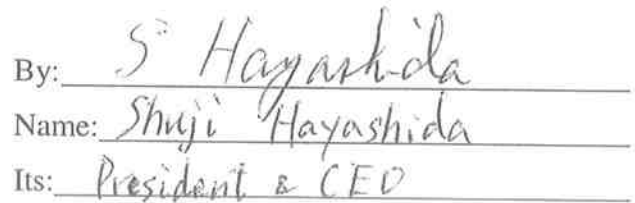 By: S Hayashida
Name: Shuji Hayashida
Its: President & CEO